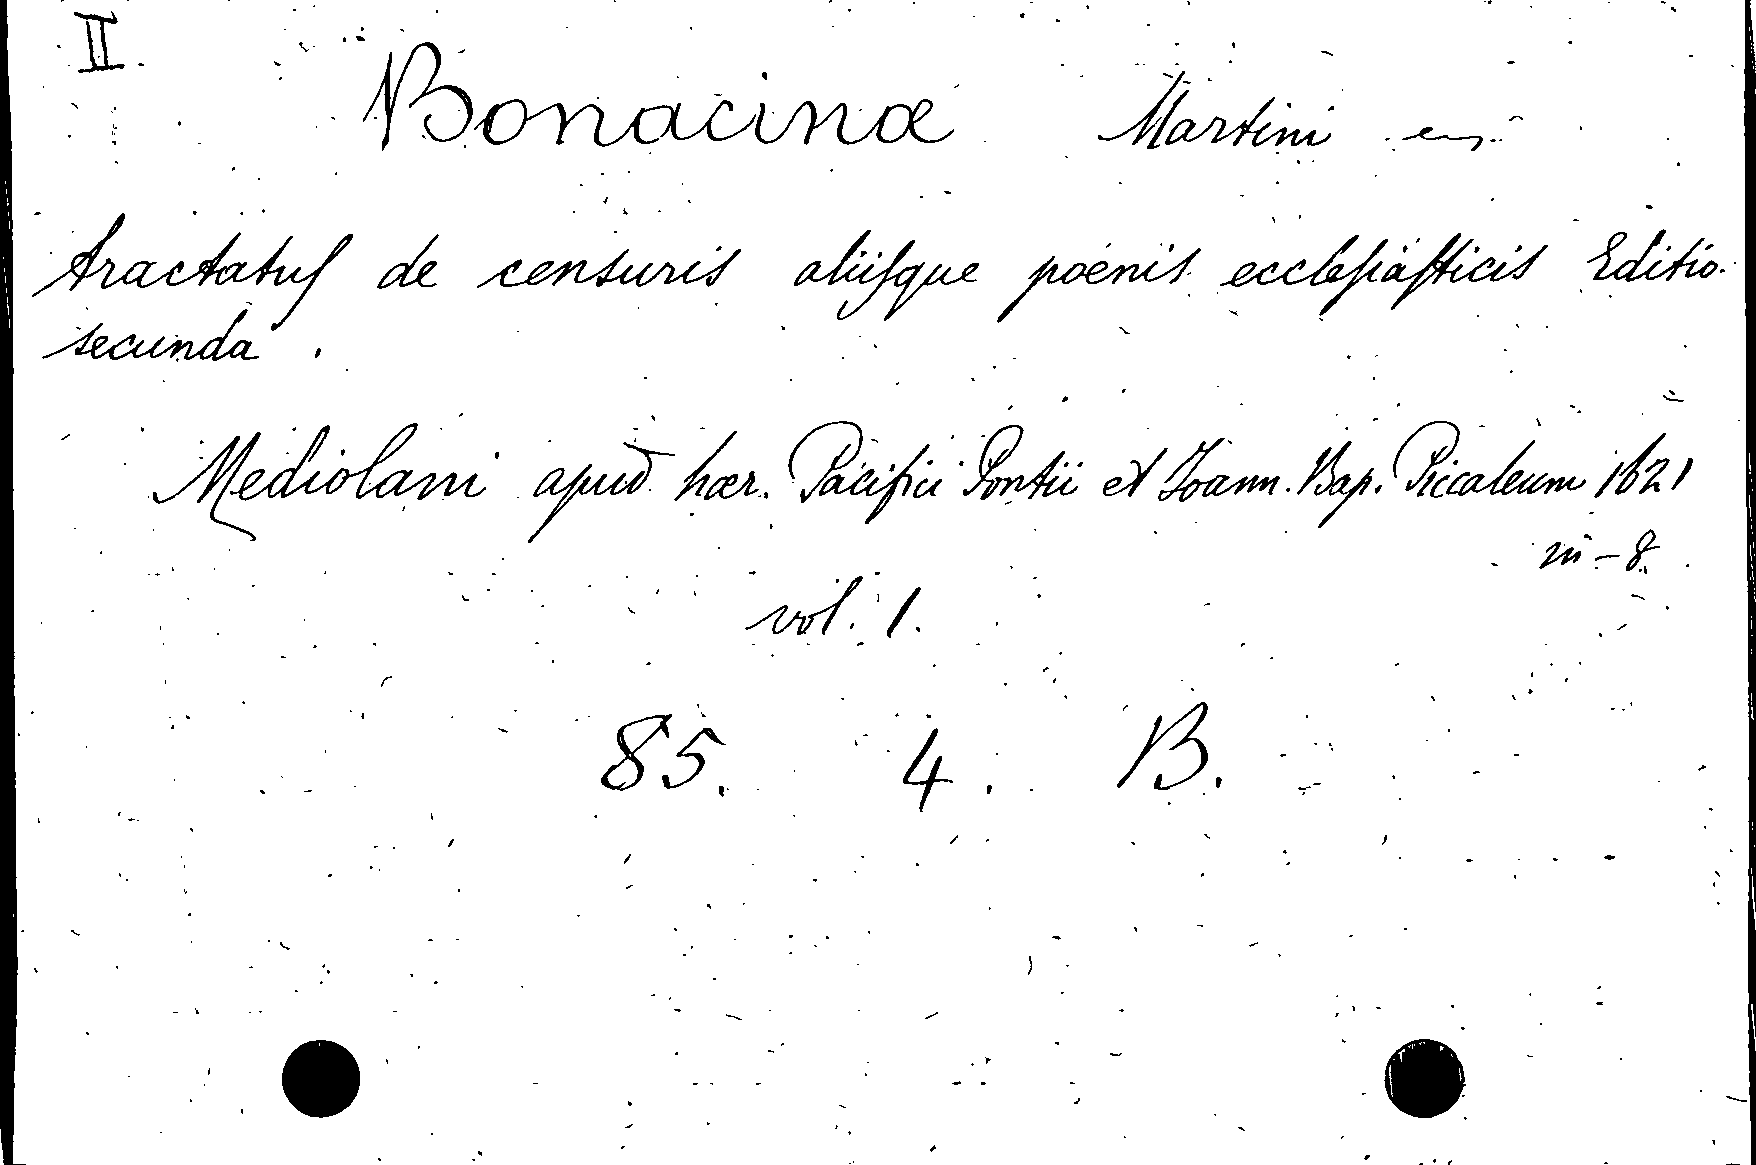 II.
Bonacinæ Martini
tractatuſ de censuris aliiſque poenis eccleſiaſticis Editio
secunda.
Mediolani apud hær. Pacifici Pontii et Ioann. Bap. Piccaleum 1621
in-8.
vol. 1.
85. 4. B.